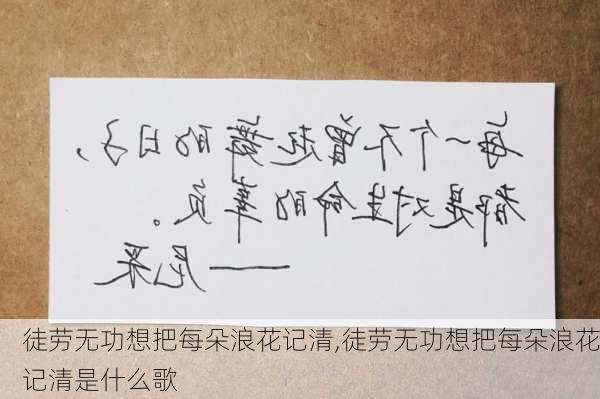 每一个不曾起舞的日子，
都是对生命的辜负。
——尼采
徒劳无功想把每朵浪花记清,徒劳无功想把每朵浪花
记清是什么歌